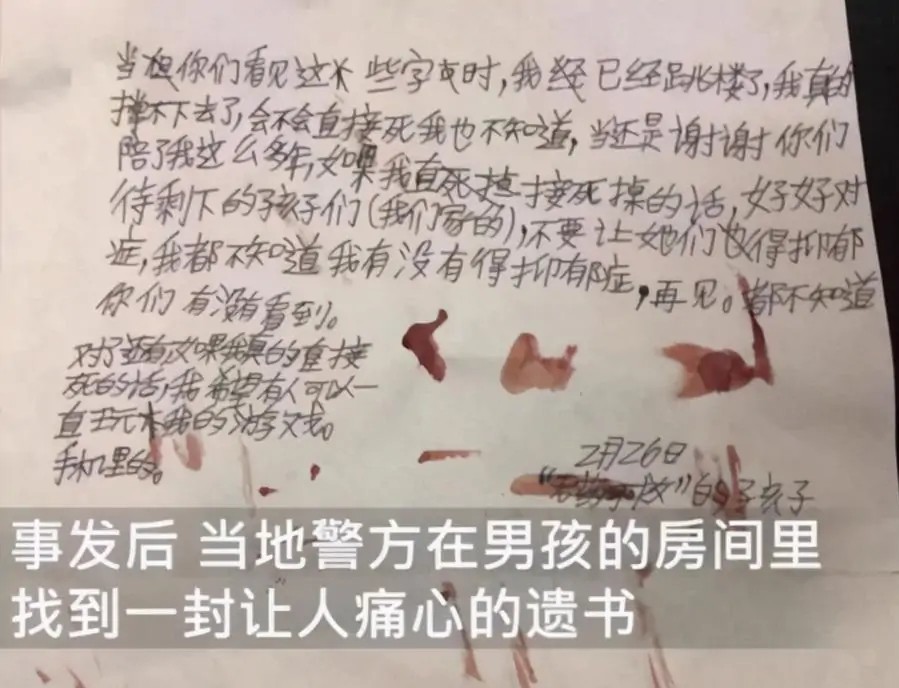 当想你们看见这长些字时，我经已经跳楼了，我真的
撑不下去了，会不会直接死我也不知道，当还是谢谢你们
陪了我这么多年，如果我直死接接死掉的话，好好对
待剩下的孩子们（我们家的），不要让她们也得抑郁
症，我都不知道我有没有得抑郁症，再见。都不知道
你们有没有看到。
对了还有如果我真的直接
死的话，我希望有人可以一
直玩我的游戏。
手机里的。
2月26日
“无药可救”的孩子
事发后 当地警方在男孩的房间里
找到一封让人痛心的遗书